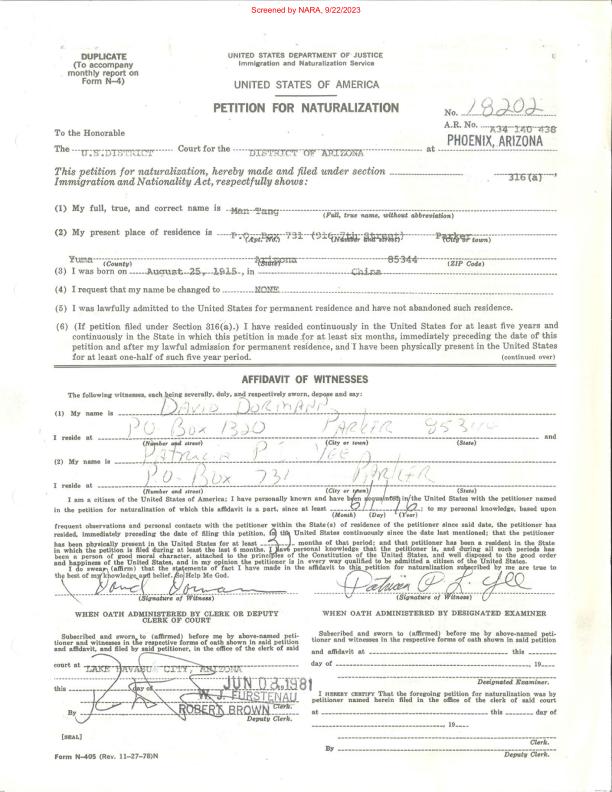 Screened by NARA, 9/22/2023
DUPLICATE
(To accompany
monthly report on
Form N-4)
UNITED STATES DEPARTMENT OF JUSTICE
Immigration and Naturalization Service
UNITED STATES OF AMERICA
PETITION FOR NATURALIZATION
No. 18202
A.R. No. A34 140 438
To the Honorable
PHOENIX, ARIZONA
The U.S.DISTRICT Court for the DISTRICT OF ARIZONA at
This petition for naturalization, hereby made and filed under section 316(a),
Immigration and Nationality Act, respectfully shows:
(1) My full, true, and correct name is Man Tang
(Full, true name, without abbreviation)
(2) My present place of residence is P.O. Box 731 (916 7th Street) Parker
(Apt. No.) (Number and street) (City or town)
Yuma Arizona 85344
(County) (State) (ZIP Code)
(3) I was born on August 25, 1915, in China
(4) I request that my name be changed to NONE
(5) I was lawfully admitted to the United States for permanent residence and have not abandoned such residence.
(6) (If petition filed under Section 316(a).) I have resided continuously in the United States for at least five years and
continuously in the State in which this petition is made for at least six months, immediately preceding the date of this
petition and after my lawful admission for permanent residence, and I have been physically present in the United States
for at least one-half of such five year period. (continued over)
AFFIDAVIT OF WITNESSES
The following witnesses, each being severally, duly, and respectively sworn, depose and say:
(1) My name is DAVID DORMANN
I reside at PO BOX 1320 PARKER 85344 and
(Number and street) (City or town) (State)
(2) My name is PATRICIA P YEE
I reside at P.O. BOX 731 PARKER
(Number and street) (City or town) (State)
I am a citizen of the United States of America; I have personally known and have been acquainted in the United States with the petitioner named
in the petition for naturalization of which this affidavit is a part, since at least 6/1/76; to my personal knowledge, based upon
(Month) (Day) (Year)
frequent observations and personal contacts with the petitioner within the State(s) of residence of the petitioner since said date, the petitioner has
resided, immediately preceding the date of filing this petition, in the United States continuously since the date last mentioned; that the petitioner
has been physically present in the United States for at least months of that period; and that petitioner has been a resident in the State
in which the petition is filed during at least the last 6 months. I have personal knowledge that the petitioner is, and during all such periods has
been a person of good moral character, attached to the principles of the Constitution of the United States, and well disposed to the good order
and happiness of the United States, and in my opinion the petitioner is in every way qualified to be admitted a citizen of the United States.
I do swear (affirm) that the statements of fact I have made in the affidavit to this petition for naturalization subscribed by me are true to
the best of my knowledge and belief. So Help Me God.
(Signature of Witness) (Signature of Witness)
WHEN OATH ADMINISTERED BY CLERK OR DEPUTY
CLERK OF COURT
Subscribed and sworn to (affirmed) before me by above-named peti-
tioner and witnesses in the respective forms of oath shown in said petition
and affidavit, and filed by said petitioner, in the office of the clerk of said
court at LAKE HAVASU CITY, ARIZONA
this day of JUN 03 1981
W. J. FURSTENAU
Clerk.
By ROBERT BROWN
Deputy Clerk.
[SEAL]
WHEN OATH ADMINISTERED BY DESIGNATED EXAMINER
Subscribed and sworn to (affirmed) before me by above-named peti-
tioner and witnesses in the respective forms of oath shown in said petition
and affidavit at this
day of , 19
Designated Examiner.
I HEREBY CERTIFY That the foregoing petition for naturalization was by
petitioner named herein filed in the office of the clerk of said court
at this day of
, 19
Clerk.
By
Deputy Clerk.
Form N-405 (Rev. 11-27-78)N